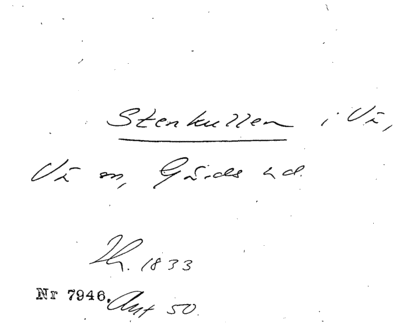 Stenkullen i Vä,
Vä sn, Gärds hd.
Th. 1833
Nr 7946. Ant 50